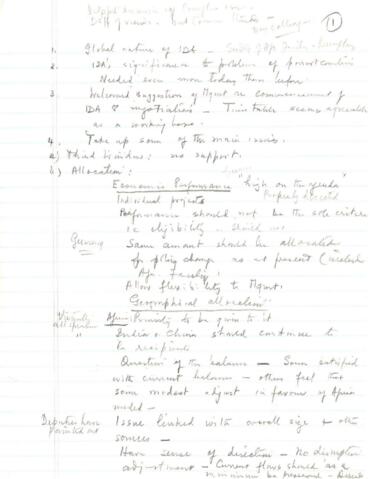 Diff of views. But Common
1
1. Global nature of IDA
2. IDA's significance to problem of poorest countries
Needed even more today than before.
3. Welcomed suggestion of Mgmt on commencement of
IDA 9 negotiations - Time table seems agreeable
as a working basis.
4. Take up some of the main issues.
a) Third Window: no support.
b) Allocation:
Economic Performance "high on the agenda"
Individual projects
Performance should not be the sole criteria
i.e. eligibility
Germany
Same amount should be allocated
for policy change as at present
Allow flexibility to Mgmt.
Geographical allocation
Africa Priority to be given to it
India & China should continue to
be recipients
Question of the balance - Some satisfied
with current balance - others feel that
some modest adjust in favour of Africa
needed -
Deputies have
pointed out
Issue linked with overall size & other
sources -
Have sense of direction - No disruptive
adjustment - Current flows should as a
minimum be preserved -